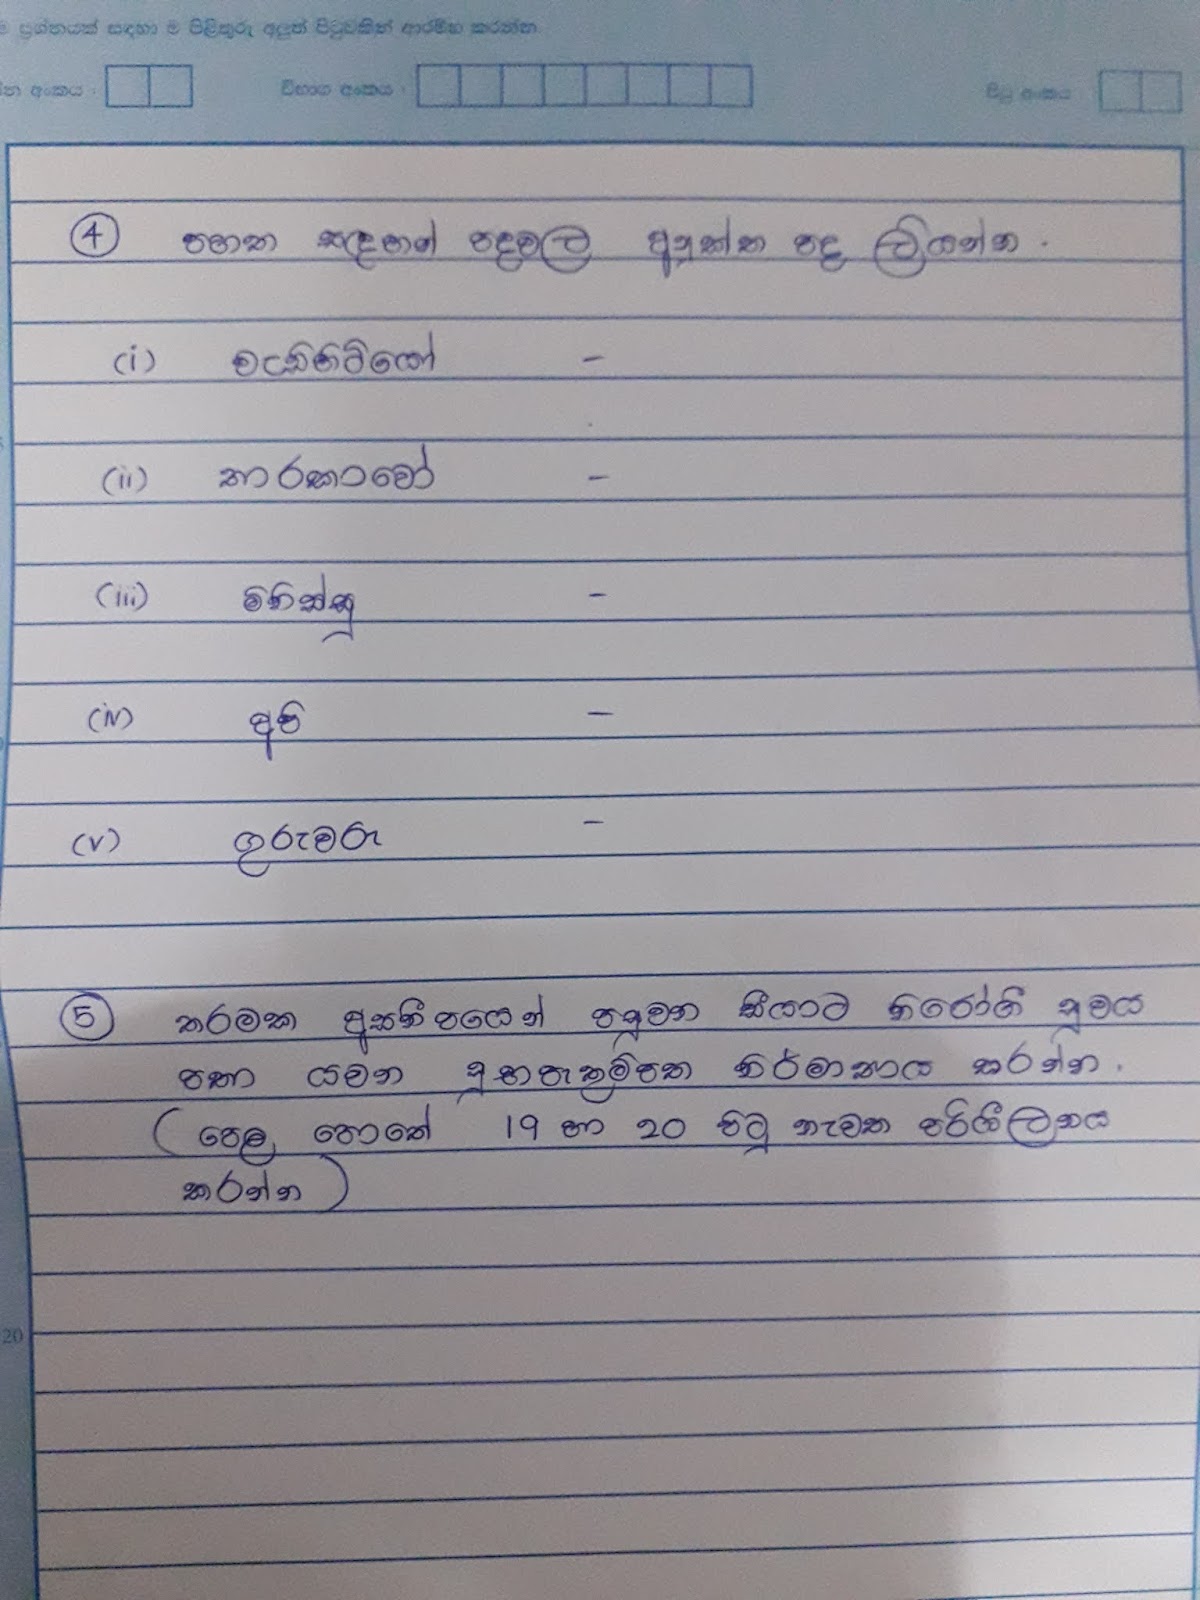 ම ප්‍රශ්නයක් සඳහා ම පිළිතුරු අලුත් පිටුවකින් ආරම්භ කරන්න
අංකය : විභාග අංකය : පිටු අංකය :
④ පහත සඳහන් පදවල අයුක්ත පද ලියන්න .
(i) වැඩිහිටියෝ –
(ii) තාරකාවෝ –
(iii) මිනිස්සු –
(iv) අපි –
(v) ගුරුවරු –
⑤ තරමක අසනීපයෙන් පසුවන සීයාට නිරෝගී සුවය
පතා යවන සුභපැතුම්පත නිර්මාණය කරන්න .
(පෙළ පොතේ 19 හා 20 පිටු නැවත පරිශීලනය
කරන්න)
20